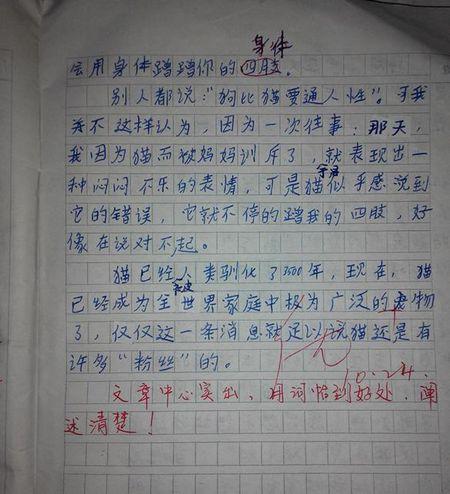 身体
会用身体蹭蹭你的四肢。
别人都说:“狗比猫要通人性”。可我
并不这样认为,因为一次往事:那天,
我因为猫而被妈妈训斥了,就表现出一
种闷闷不乐的表情,可是猫似乎感觉到
它的错误,它就不停的蹭我的四肢,好
像在说对不起。
猫已经人类驯化了3500年,现在,猫
已经成为全世界家庭中极为广泛的宠物
了,仅仅这一条消息就足以说猫还是有
许多“粉丝”的。
优
10.24.
文章中心突出,用词恰到好处,阐
述清楚!